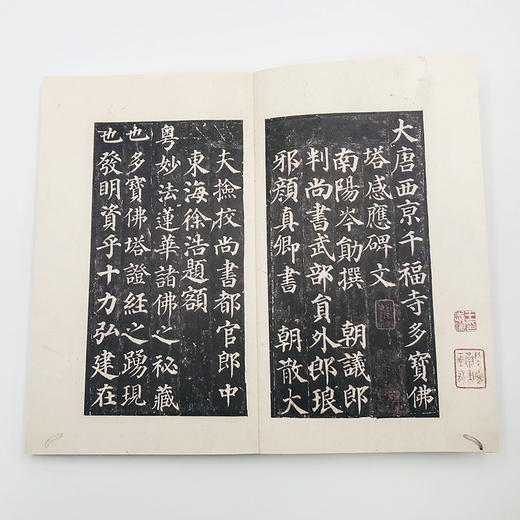 大唐西京千福寺多寶佛
塔感應碑文
南陽岑勛撰　朝議郎
判尚書武部員外郎琅
邪顏真卿書　朝散大
夫撿挍尚書都官郎中
東海徐浩題額
粵妙法蓮華諸佛之秘藏
也多寶佛塔證經之踴現
也發明資乎十力弘建在